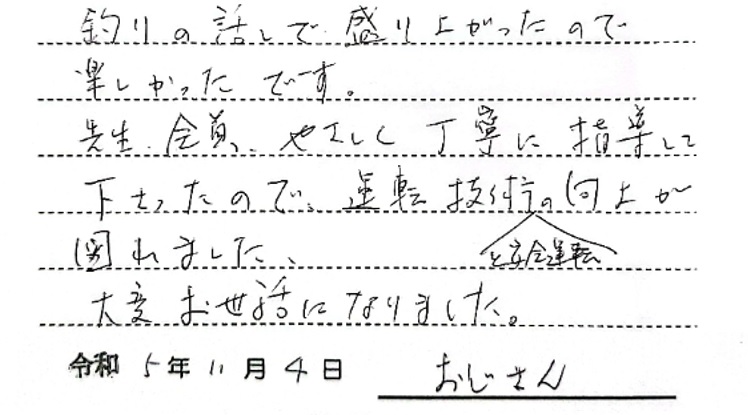 釣りの話しで盛り上がったので
楽しかったです。
先生、全員、やさしく丁寧に指導して
下さったので、運転技術の向上が
と安全運転
図れました、
大変お世話になりました。
令和5年11月4日 おじさん